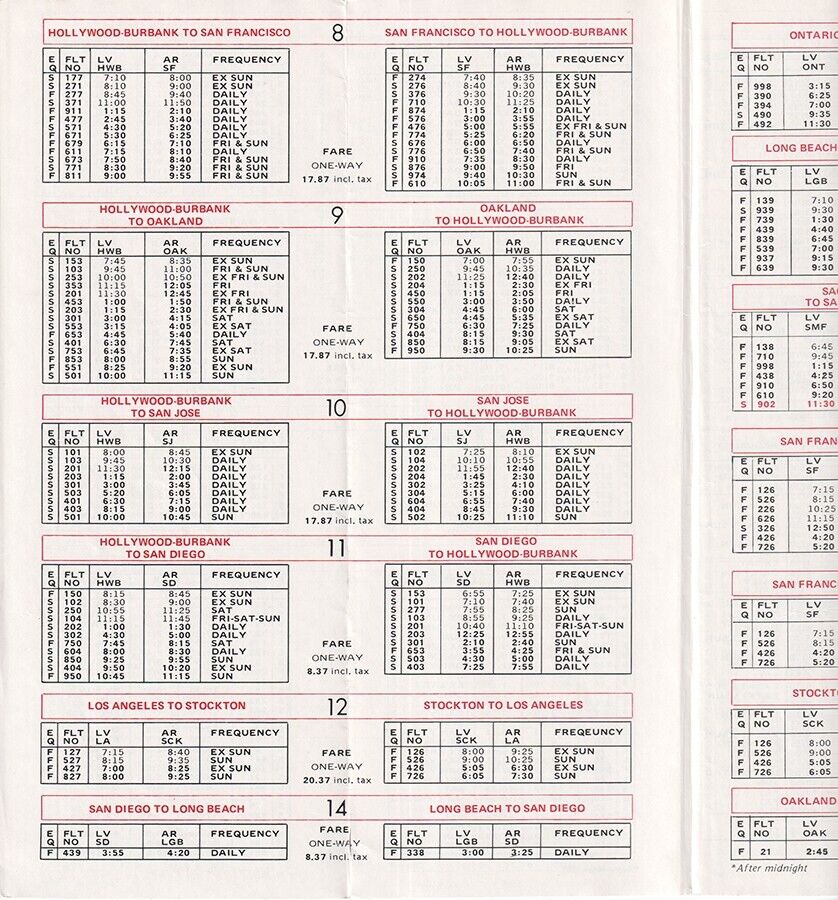 HOLLYWOOD-BURBANK TO SAN FRANCISCO
8
SAN FRANCISCO TO HOLLYWOOD-BURBANK
E FLT LV AR FREQUENCY
Q NO HWB SF
S 177 7:10 8:00 EX SUN
S 271 8:10 9:00 EX SUN
S 277 8:45 9:40 DAILY
S 371 11:00 11:50 DAILY
F 911 1:15 2:10 DAILY
F 477 2:45 3:40 DAILY
S 571 4:30 5:20 DAILY
F 671 5:30 6:25 DAILY
F 679 6:15 7:10 FRI & SUN
F 611 7:15 8:10 DAILY
S 673 7:50 8:40 FRI & SUN
S 771 8:30 9:20 FRI & SUN
F 811 9:00 9:55 FRI & SUN
FARE
ONE-WAY
17.87 incl. tax
E FLT LV AR FREQUENCY
Q NO SF HWB
F 274 7:40 8:35 EX SUN
S 276 8:40 9:30 EX SUN
S 376 9:30 10:20 DAILY
F 710 10:30 11:25 DAILY
F 874 1:15 2:10 DAILY
S 576 3:00 3:55 DAILY
F 476 5:00 5:55 EX FRI & SUN
F 774 5:25 6:20 FRI & SUN
S 676 6:00 6:50 DAILY
S 776 6:50 7:40 FRI & SUN
F 910 7:35 8:30 DAILY
S 876 9:00 9:50 FRI
S 974 9:40 10:30 SUN
F 610 10:05 11:00 FRI & SUN
HOLLYWOOD-BURBANK
TO OAKLAND
9
OAKLAND
TO HOLLYWOOD-BURBANK
E FLT LV AR FREQUENCY
Q NO HWB OAK
S 153 7:45 8:35 EX SUN
S 103 9:45 11:00 FRI & SUN
S 253 10:00 10:50 EX FRI & SUN
S 353 11:15 12:05 FRI
S 201 11:30 12:45 EX FRI
S 453 1:00 1:50 FRI & SUN
S 203 1:15 2:30 EX FRI & SUN
S 301 3:00 4:15 SAT
S 553 3:15 4:05 EX SAT
F 653 4:45 5:40 DAILY
S 401 6:30 7:45 SAT
S 753 6:45 7:35 EX SAT
F 853 8:00 8:55 SUN
F 551 8:25 9:20 EX SUN
S 501 10:00 11:15 SUN
FARE
ONE-WAY
17.87 incl. tax
E FLT LV AR FREQUENCY
Q NO OAK HWB
F 150 7:00 7:55 EX SUN
S 250 9:45 10:35 DAILY
S 202 11:25 12:40 DAILY
S 204 1:15 2:30 EX FRI
S 450 1:15 2:05 FRI
S 550 3:00 3:50 DAILY
S 304 4:45 6:00 SAT
S 650 4:45 5:35 EX SAT
F 750 6:30 7:25 DAILY
S 404 8:15 9:30 SAT
S 850 8:15 9:05 EX SAT
F 950 9:30 10:25 SUN
HOLLYWOOD-BURBANK
TO SAN JOSE
10
SAN JOSE
TO HOLLYWOOD-BURBANK
E FLT LV AR FREQUENCY
Q NO HWB SJ
S 101 8:00 8:45 EX SUN
S 103 9:45 10:30 DAILY
S 201 11:30 12:15 DAILY
S 203 1:15 2:00 DAILY
S 301 3:00 3:45 DAILY
S 503 5:20 6:05 DAILY
S 401 6:30 7:15 DAILY
S 403 8:15 9:00 DAILY
S 501 10:00 10:45 SUN
FARE
ONE-WAY
17.87 incl. tax
E FLT LV AR FREQUENCY
Q NO SJ HWB
S 102 7:25 8:10 EX SUN
S 104 10:10 10:55 DAILY
S 202 11:55 12:40 DAILY
S 204 1:45 2:30 DAILY
S 302 3:25 4:10 DAILY
S 304 5:15 6:00 DAILY
S 604 6:55 7:40 DAILY
S 404 8:45 9:30 DAILY
S 502 10:25 11:10 SUN
HOLLYWOOD-BURBANK
TO SAN DIEGO
11
SAN DIEGO
TO HOLLYWOOD-BURBANK
E FLT LV AR FREQUENCY
Q NO HWB SD
F 150 8:15 8:45 EX SUN
S 102 8:30 9:00 EX SUN
S 250 10:55 11:25 SAT
S 104 11:15 11:45 FRI-SAT-SUN
S 202 1:00 1:30 DAILY
S 302 4:30 5:00 DAILY
F 750 7:45 8:15 SAT
S 604 8:00 8:30 DAILY
S 850 9:25 9:55 SUN
S 404 9:50 10:20 EX SUN
F 950 10:45 11:15 SUN
FARE
ONE-WAY
8.37 incl. tax
E FLT LV AR FREQUENCY
Q NO SD HWB
S 153 6:55 7:25 EX SUN
S 101 7:10 7:40 EX SUN
S 277 7:55 8:25 SUN
S 103 8:55 9:25 DAILY
S 201 10:40 11:10 FRI-SUT-SUN
S 203 12:25 12:55 DAILY
S 301 2:10 2:40 SUN
F 653 3:55 4:25 FRI & SUN
S 503 4:30 5:00 DAILY
S 403 7:25 7:55 DAILY
LOS ANGELES TO STOCKTON
12
STOCKTON TO LOS ANGELES
E FLT LV AR FREQUENCY
Q NO LA SCK
F 127 7:15 8:40 EX SUN
F 527 8:15 9:35 SUN
F 427 7:00 8:25 EX SUN
F 827 8:00 9:25 SUN
FARE
ONE-WAY
20.37 incl. tax
E FLT LV AR FREQEUNCY
Q NO SCK LA
F 126 8:00 9:25 EX SUN
F 526 9:00 10:25 SUN
F 426 5:05 6:30 EX SUN
F 726 6:05 7:30 SUN
SAN DIEGO TO LONG BEACH
14
LONG BEACH TO SAN DIEGO
E FLT LV AR FREQUENCY
Q NO SD LGB
F 439 3:55 4:20 DAILY
FARE
ONE-WAY
8.37 incl. tax
E FLT LV AR FREQUENCY
Q NO LGB SD
F 338 3:00 3:25 DAILY
ONTARIO
E FLT LV
Q NO ONT
F 998 3:15
F 390 6:25
F 394 7:00
S 490 9:35
F 492 11:30
LONG BEACH
E FLT LV
Q NO LGB
F 139 7:10
S 939 9:30
F 739 1:30
F 439 4:40
F 839 6:45
F 539 7:00
F 937 9:15
F 639 9:30
SA
TO SA
E FLT LV
Q NO SMF
F 138 6:45
F 710 9:45
F 998 1:15
F 438 4:25
F 910 6:50
F 610 9:20
S 902 11:30
SAN FRAN
E FLT LV
Q NO SF
F 126 7:15
F 526 8:15
F 226 10:25
F 626 11:15
S 326 12:50
F 426 4:20
F 726 5:20
SAN FRANC
E FLT LV
Q NO SF
F 126 7:15
F 526 8:15
F 426 4:20
F 726 5:20
STOCKT
E FLT LV
Q NO SCK
F 126 8:00
F 526 9:00
F 426 5:05
F 726 6:05
OAKLAND
E FLT LV
Q NO OAK
F 21 2:45
*After midnight